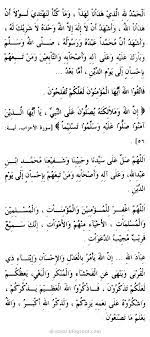 الْحَمْدُ لِلَّهِ الَّذِي هَدَانَا لِهَذَا، وَمَا كُنَّا لِنَهْتَدِيَ لَوْلَا أَنْ
هَدَانَا اللَّهُ، وَأَشْهَدُ أَنْ لَا إِلَهَ إِلَّا اللَّهُ وَحْدَهُ لَا شَرِيْكَ لَهُ،
وَأَشْهَدُ أَنَّ مُحَمَّدًا عَبْدُهُ وَرَسُوْلُهُ، صَلَّى اللَّهُ وَسَلَّمَ
وَبَارَكَ عَلَيْهِ وَعَلَى آلِهِ وَأَصْحَابِهِ وَالتَّابِعِيْنَ وَمَنْ تَبِعَهُمْ
بِإِحْسَانٍ إِلَى يَوْمِ الدِّيْنِ.
فَاتَّقُوا اللَّهَ أَيُّهَا الْمُسْلِمُوْنَ لَعَلَّكُمْ تُفْلِحُوْنَ.
﴿ إِنَّ اللَّهَ وَمَلَائِكَتَهُ يُصَلُّوْنَ عَلَى النَّبِيِّ ، يَا أَيُّهَا الَّذِيْنَ
آمَنُوا صَلُّوا عَلَيْهِ وَسَلِّمُوا تَسْلِيْمًا ﴾ [سورة الأحزاب، آية:
٥٦].
اللَّهُمَّ صَلِّ عَلَى سَيِّدِنَا وَحَبِيْبِنَا وَشَفِيْعِنَا مُحَمَّدٍ ابْنِ
عَبْدِ اللَّهِ، وَعَلَى آلِهِ وَأَصْحَابِهِ وَمَنْ تَبِعَهُمْ بِإِحْسَانٍ إِلَى يَوْمِ
الدِّيْنِ.
اللَّهُمَّ اغْفِرْ لِلْمُؤْمِنِيْنَ وَالْمُؤْمِنَاتِ، وَالْمُسْلِمِيْنَ
وَالْمُسْلِمَاتِ، الْأَحْيَاءِ مِنْهُمْ وَالْأَمْوَاتِ ، إِنَّكَ سَمِيْعٌ
قَرِيْبٌ مُجِيْبُ الدَّعَوَاتِ .
عِبَادَ اللَّهِ ... إِنَّ اللَّهَ يَأْمُرُ بِالْعَدْلِ وَالْإِحْسَانِ، وَإِيْتَاءِ ذِي
الْقُرْبَى وَيَنْهَى عَنِ الْفَحْشَاءِ وَالْمُنْكَرِ وَالْبَغْيِ، يَعِظُكُمْ
لَعَلَّكُمْ تَذَكَّرُوْنَ، فَاذْكُرُوا اللَّهَ الْعَظِيْمَ يَذْكُرْكُمْ،
وَاشْكُرُوْهُ عَلَى نِعَمِهِ يَزِدْكُمْ، وَلَذِكْرُ اللَّهِ أَكْبَرُ، وَاللَّهُ
يَعْلَمُ مَا تَصْنَعُوْنَ